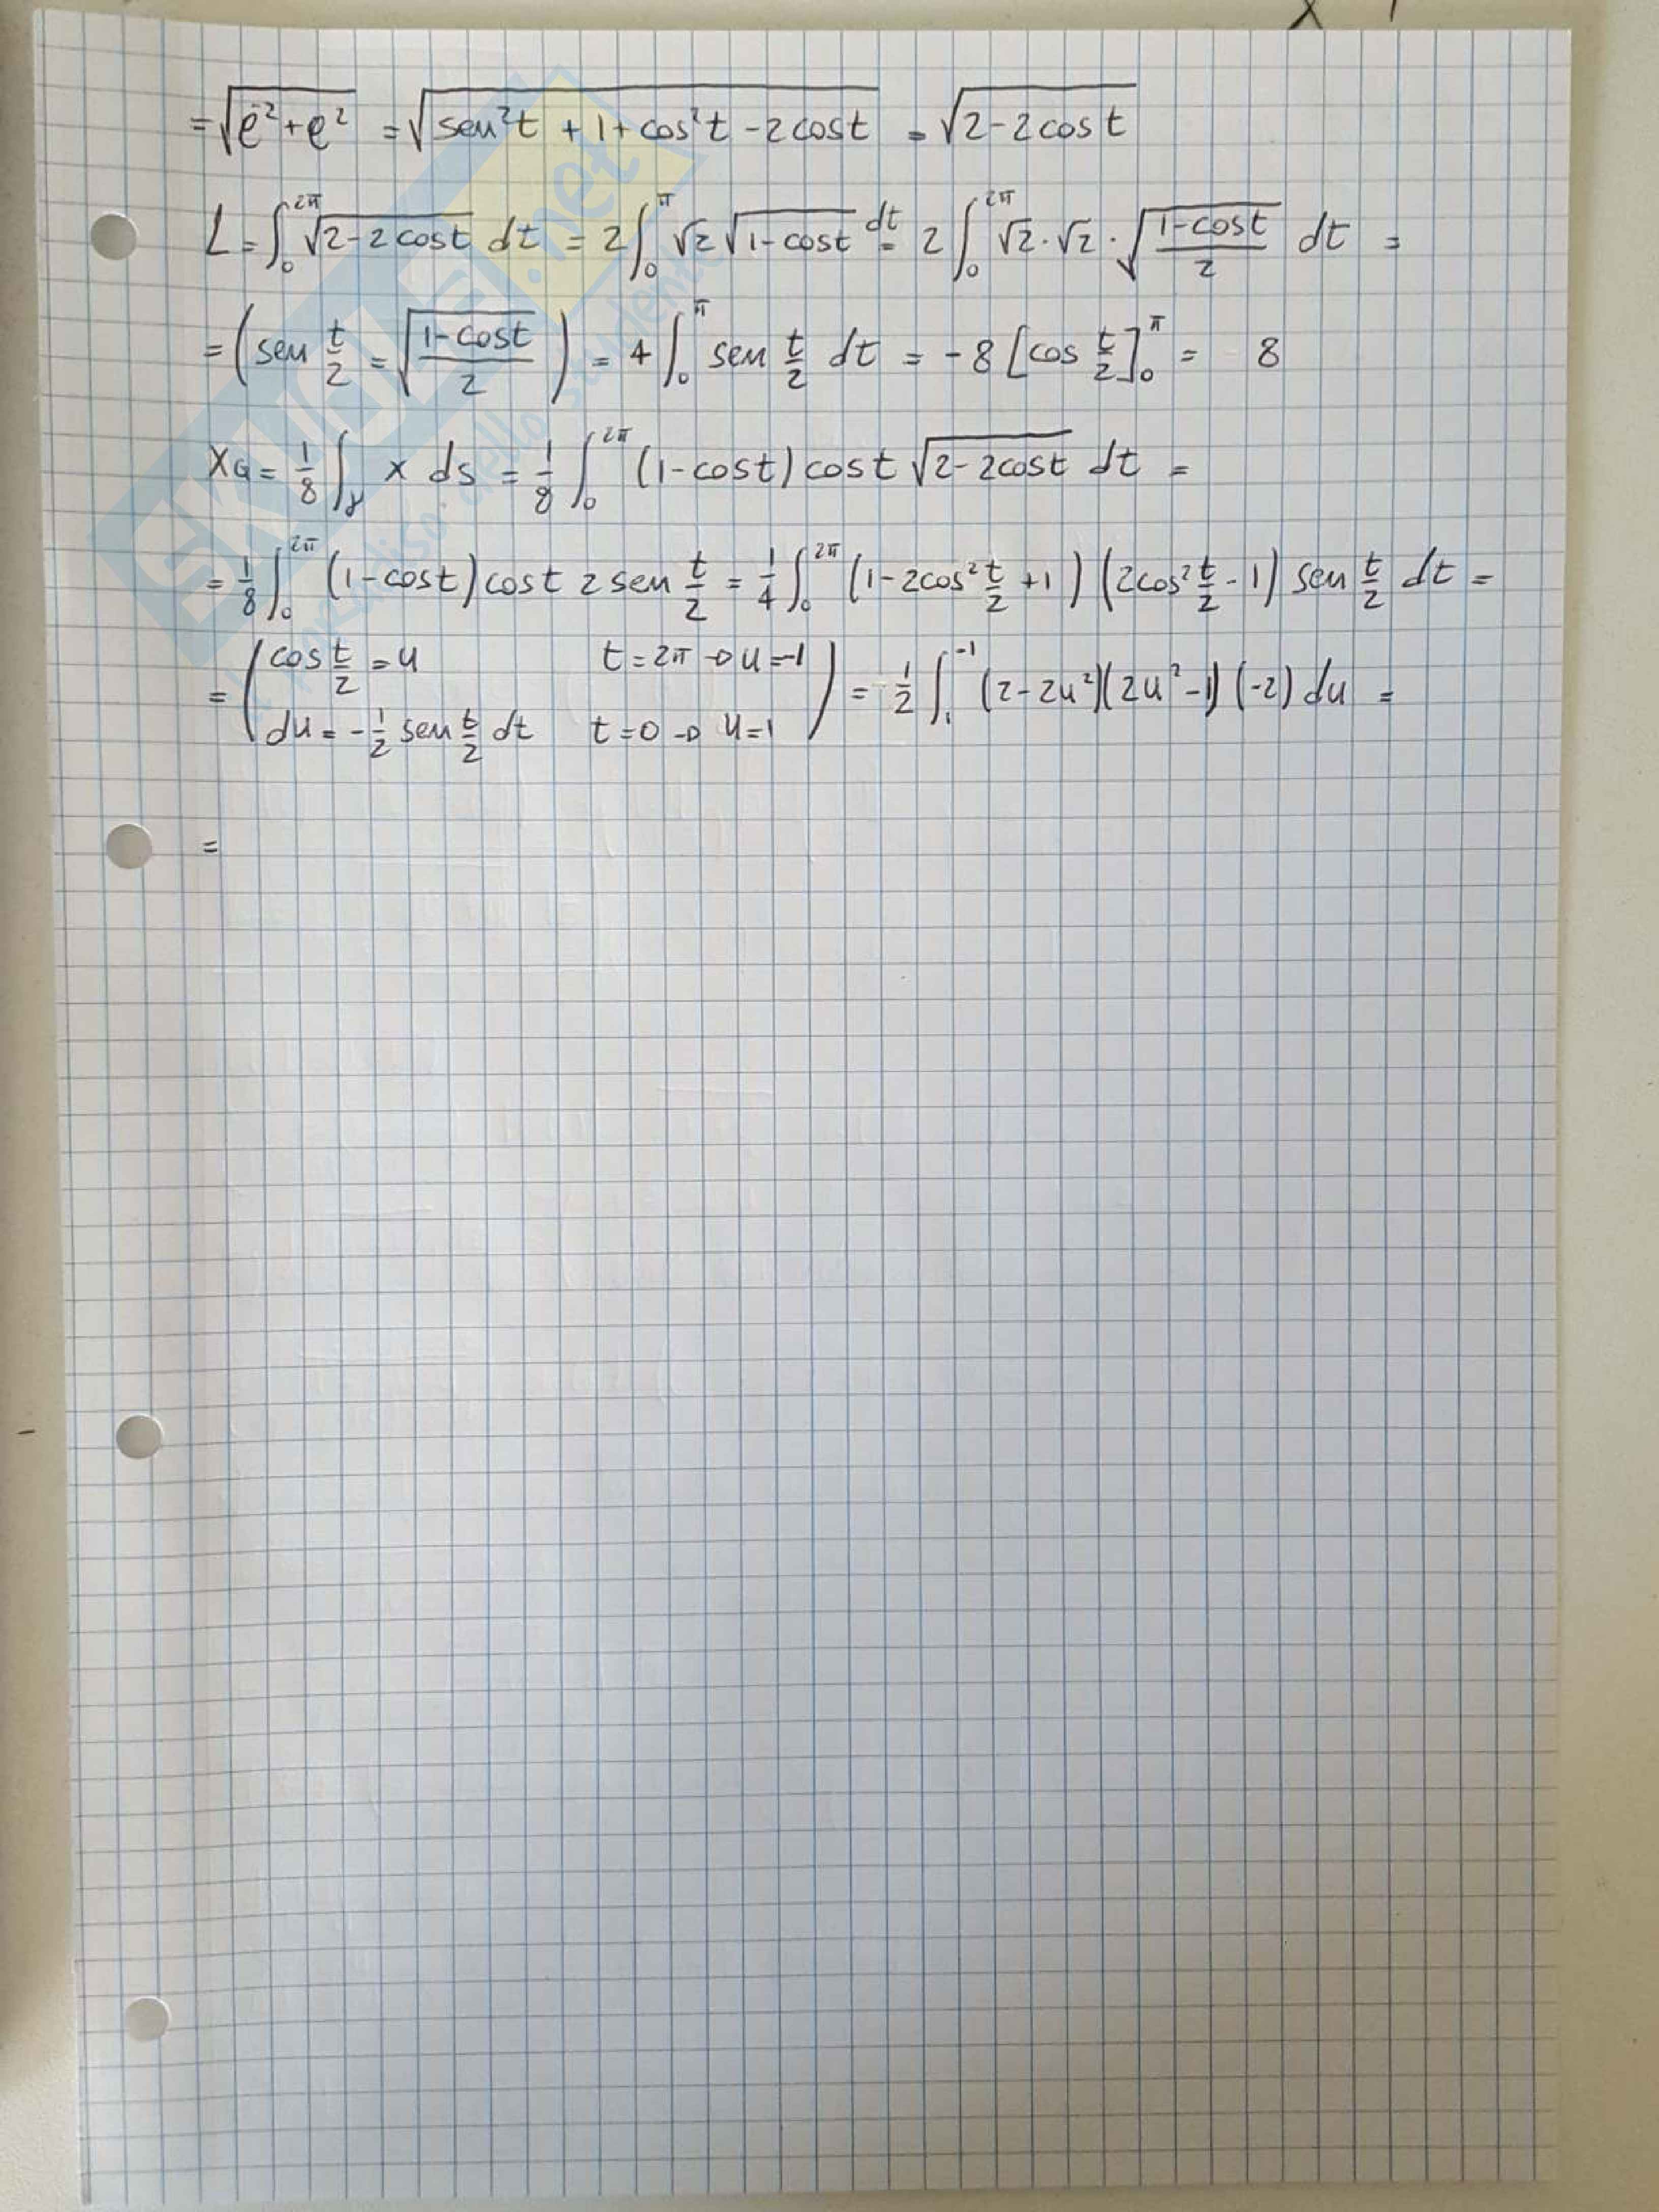 = √(ρ̇² + ρ²) = √(sen²t + 1 + cos²t - 2cost) = √(2 - 2cost)
L = ∫₀^2π √(2 - 2cost) dt = 2∫₀^π √2 √(1 - cost) dt = 2∫₀^2π √2 · √2 · √((1-cost)/2) dt =
= (sen t/2 = √((1-cost)/2)) = 4∫₀^π sen t/2 dt = -8 [cos t/2]₀^π = 8
XG = 1/8 ∫_γ x ds = 1/8 ∫₀^2π (1-cost) cost √(2-2cost) dt =
= 1/8 ∫₀^2π (1-cost) cost 2 sen t/2 = 1/4 ∫₀^2π (1-2cos² t/2 + 1) (2cos² t/2 - 1) sen t/2 dt =
= (cos t/2 = u t = 2π → u = -1
du = -1/2 sen t/2 dt t = 0 → u = 1) = 1/2 ∫₁^-1 (2-2u²)(2u²-1)(-2) du =
=
SKUOLA.net
il paradiso dello studente